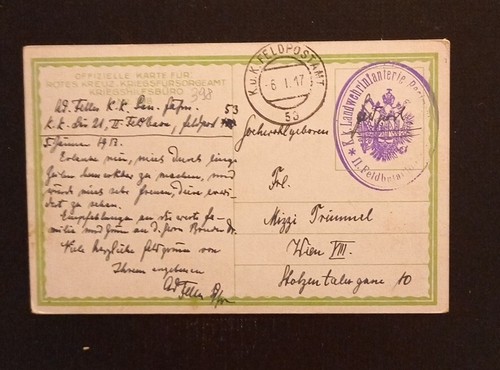 OFFIZIELLE KARTE FÜR
ROTES KREUZ, KRIEGSFÜRSORGEAMT
KRIEGSHILFSBÜRO
398
K.u.K. FELDPOSTAMT
6. I. 17
53
K.k. Landwehrinfanterie
II. Feldbaon
Feldpost
Ad. Feller K.K.
53
II. Feldbaon, Feldpost
5 Jänner 1917.
Erlaube mir, mich durch einige
Zeilen bemerkbar zu machen, und
würde mich sehr freuen,
zu sehen.
Empfehlungen an die werte Fa-
milie und Gruss an d. Herrn Bruder
Viele herzliche Feldgrüsse von
Ihrem ergebenen
Ad Feller
Hochwohlgeboren
Frl.
Mizzi Trimmel
Wien VIII.
Stolzentalergasse 10